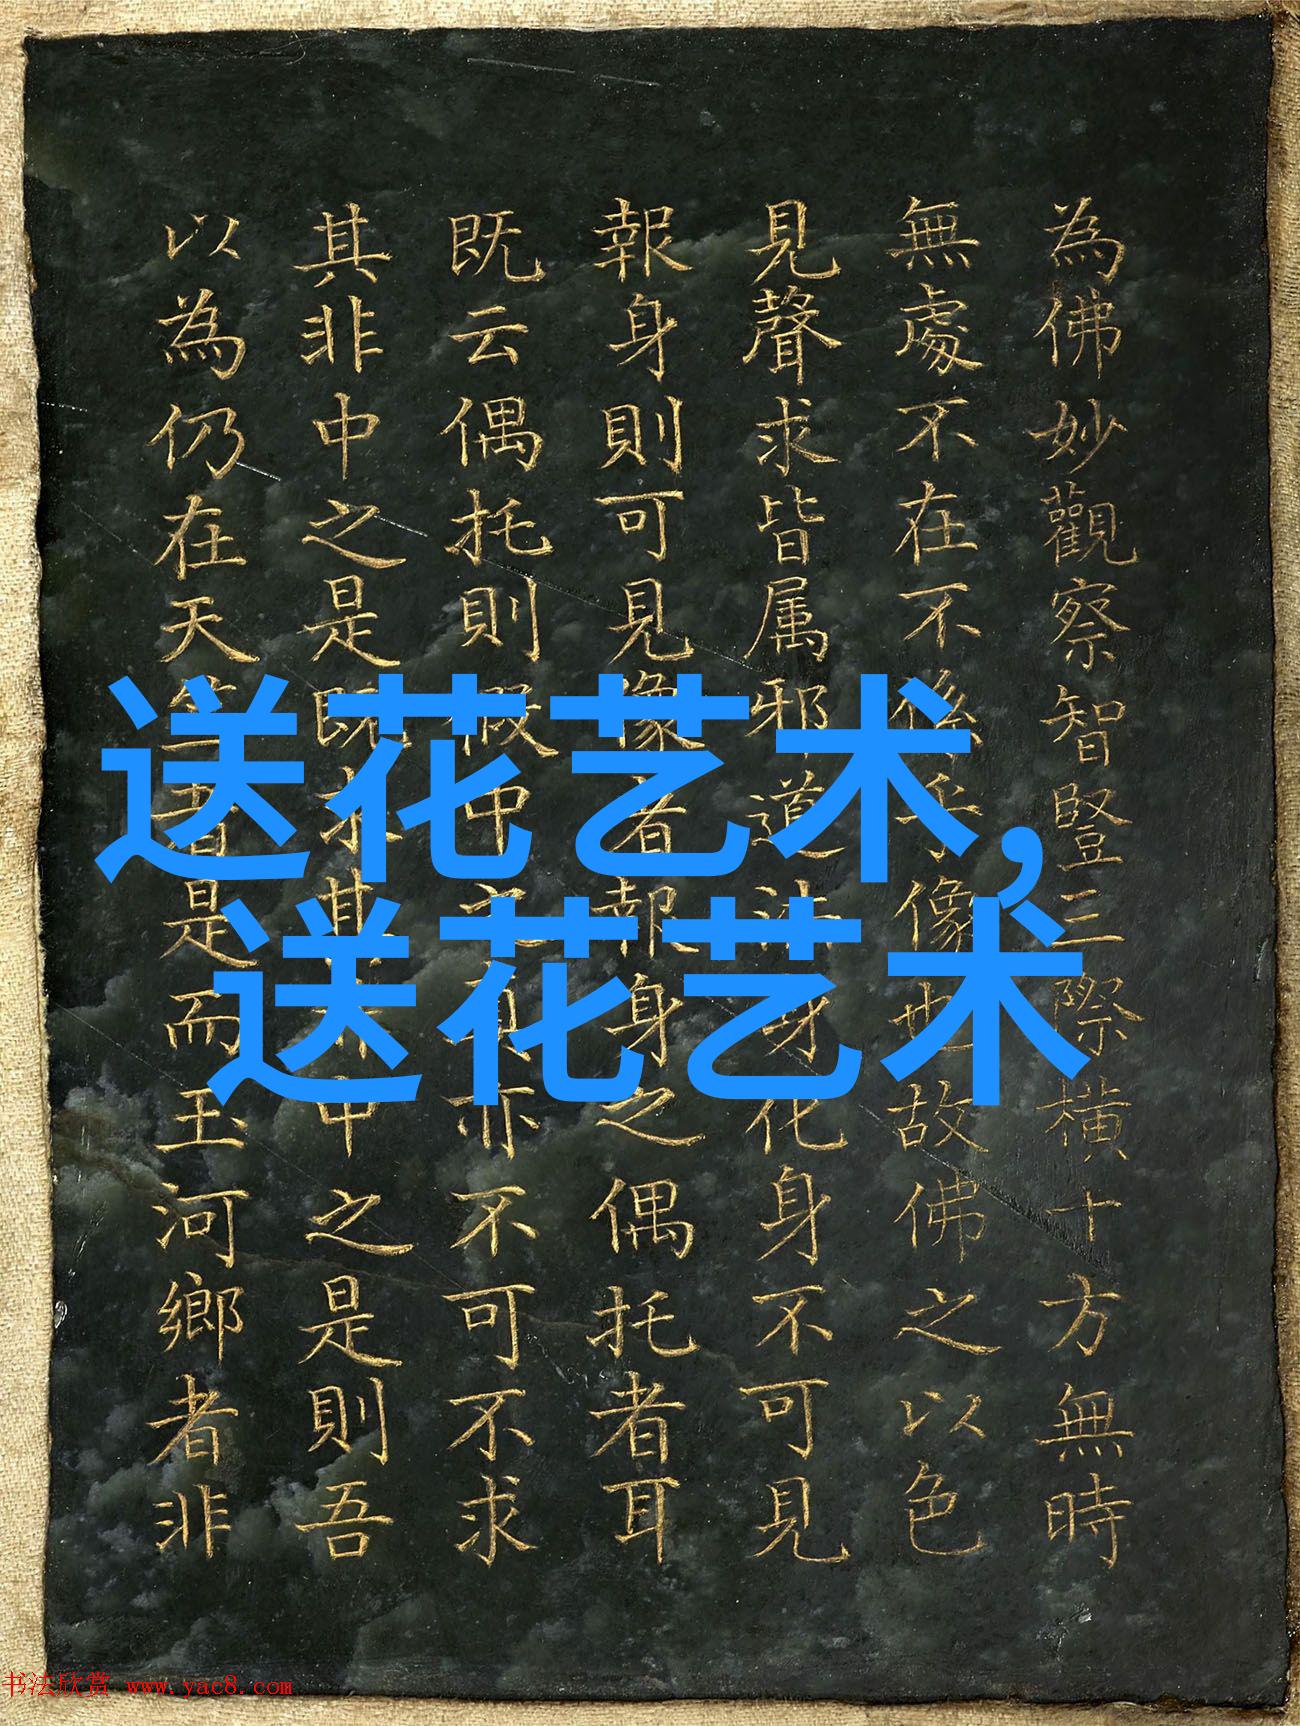 為佛妙觀察智豎三際橫十方無時
無處不在不係乎像也故佛之以色
見聲求皆属邪道法身化身不可見
報身則可見像者報身之偶托者耳
既云偶托則假中之真亦不可不求
其非中之是既求其非中之是則吾
以為仍在天竺者是而玉河鄉者非
送花艺术,
送花艺术
书法欣赏 www.yac8.com